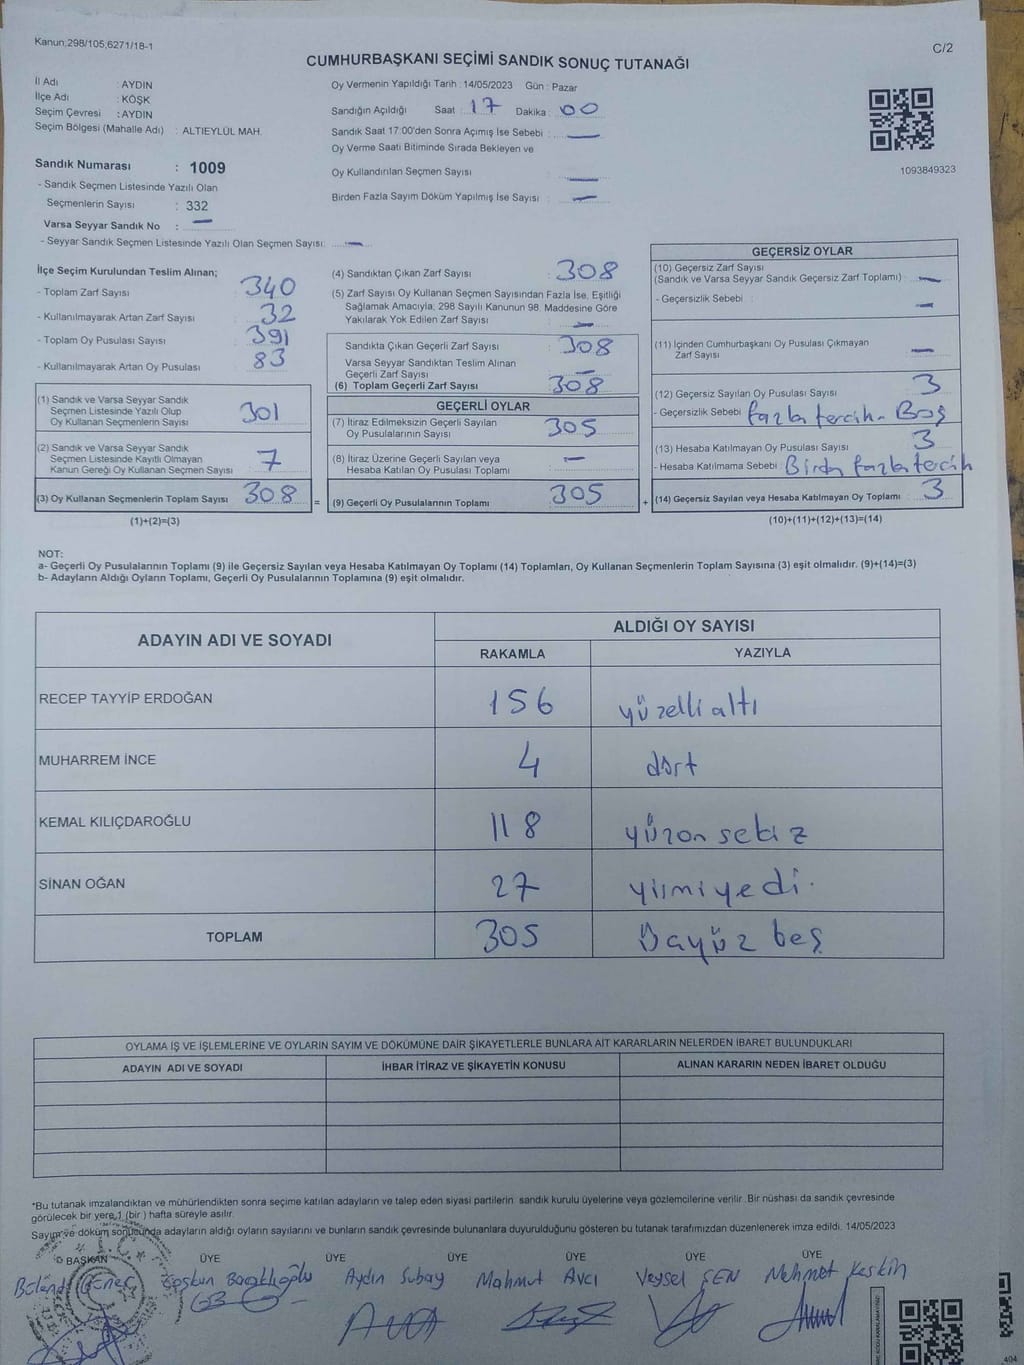 Kanun;298/105,6271/18-1
C/2
CUMHURBAŞKANI SEÇİMİ SANDIK SONUÇ TUTANAĞI
İl Adı : AYDIN
İlçe Adı : KÖŞK
Seçim Çevresi : AYDIN
Seçim Bölgesi (Mahalle Adı) : ALTIEYLÜL MAH.
Sandık Numarası : 1009
- Sandık Seçmen Listesinde Yazılı Olan
Seçmenlerin Sayısı : 332
Varsa Seyyar Sandık No : —
- Seyyar Sandık Seçmen Listesinde Yazılı Olan Seçmen Sayısı: —
Oy Vermenin Yapıldığı Tarih : 14/05/2023 Gün : Pazar
Sandığın Açıldığı Saat : 17 Dakika : 00
Sandık Saat 17:00'den Sonra Açımış İse Sebebi : —
Oy Verme Saati Bitiminde Sırada Bekleyen ve
Oy Kullandırılan Seçmen Sayısı : —
Birden Fazla Sayım Döküm Yapılmış İse Sayısı : —
1093849323
İlçe Seçim Kurulundan Teslim Alınan;
- Toplam Zarf Sayısı : 340
- Kullanılmayarak Artan Zarf Sayısı : 32
- Toplam Oy Pusulası Sayısı : 391
- Kullanılmayarak Artan Oy Pusulası : 83
(1) Sandık ve Varsa Seyyar Sandık
Seçmen Listesinde Yazılı Olup
Oy Kullanan Seçmenlerin Sayısı : 301
(2) Sandık ve Varsa Seyyar Sandık
Seçmen Listesinde Kayıtlı Olmayan
Kanun Gereği Oy Kullanan Seçmen Sayısı : 7
(3) Oy Kullanan Seçmenlerin Toplam Sayısı : 308 =
(1)+(2)=(3)
(4) Sandıktan Çıkan Zarf Sayısı : 308
(5) Zarf Sayısı Oy Kullanan Seçmen Sayısından Fazla İse, Eşitliği
Sağlamak Amacıyla, 298 Sayılı Kanunun 98. Maddesine Göre
Yakılarak Yok Edilen Zarf Sayısı : —
Sandıkta Çıkan Geçerli Zarf Sayısı : 308
Varsa Seyyar Sandıktan Teslim Alınan
Geçerli Zarf Sayısı : —
(6) Toplam Geçerli Zarf Sayısı : 308
GEÇERLİ OYLAR
(7) İtiraz Edilmeksizin Geçerli Sayılan
Oy Pusulalarının Sayısı : 305
(8) İtiraz Üzerine Geçerli Sayılan veya
Hesaba Katılan Oy Pusulası Toplamı : —
(9) Geçerli Oy Pusulalarının Toplamı : 305 +
GEÇERSİZ OYLAR
(10) Geçersiz Zarf Sayısı
(Sandık ve Varsa Seyyar Sandık Geçersiz Zarf Toplamı) : —
- Geçersizlik Sebebi : —
(11) İçinden Cumhurbaşkanı Oy Pusulası Çıkmayan
Zarf Sayısı : —
(12) Geçersiz Sayılan Oy Pusulası Sayısı : 3
- Geçersizlik Sebebi : fazla tercih - Boş
(13) Hesaba Katılmayan Oy Pusulası Sayısı : 3
- Hesaba Katılmama Sebebi : Birden fazla tercih
(14) Geçersiz Sayılan veya Hesaba Katılmayan Oy Toplamı : 3
(10)+(11)+(12)+(13)=(14)
NOT:
a- Geçerli Oy Pusulalarının Toplamı (9) ile Geçersiz Sayılan veya Hesaba Katılmayan Oy Toplamı (14) Toplamları, Oy Kullanan Seçmenlerin Toplam Sayısına (3) eşit olmalıdır. (9)+(14)=(3)
b- Adayların Aldığı Oyların Toplamı, Geçerli Oy Pusulalarının Toplamına (9) eşit olmalıdır.
ADAYIN ADI VE SOYADI
ALDIĞI OY SAYISI
RAKAMLA YAZIYLA
RECEP TAYYİP ERDOĞAN 156 yüzelli altı
MUHARREM İNCE 4 dört
KEMAL KILIÇDAROĞLU 118 yüzon sekiz
SİNAN OĞAN 27 yirmi yedi.
TOPLAM 305 üçyüz beş
OYLAMA İŞ VE İŞLEMLERİNE VE OYLARIN SAYIM VE DÖKÜMÜNE DAİR ŞİKAYETLERLE BUNLARA AİT KARARLARIN NELERDEN İBARET BULUNDUKLARI
ADAYIN ADI VE SOYADI İHBAR İTİRAZ VE ŞİKAYETİN KONUSU ALINAN KARARIN NEDEN İBARET OLDUĞU
*Bu tutanak imzalandıktan ve mühürlendikten sonra seçime katılan adayların ve talep eden siyasi partilerin sandık kurulu üyelerine veya gözlemcilerine verilir. Bir nüshası da sandık çevresinde
görülecek bir yere 1 (bir) hafta süreyle asılır.
Sayım ve döküm sonucunda adayların aldığı oyların sayılarını ve bunların sandık çevresinde bulunanlara duyurulduğunu gösteren bu tutanak tarafımızdan düzenlenerek imza edildi. 14/05/2023
BAŞKAN ÜYE ÜYE ÜYE ÜYE ÜYE ÜYE
Aydın Subay Mahmut Avcı Veysel ŞEN Mehmet Keskin
404